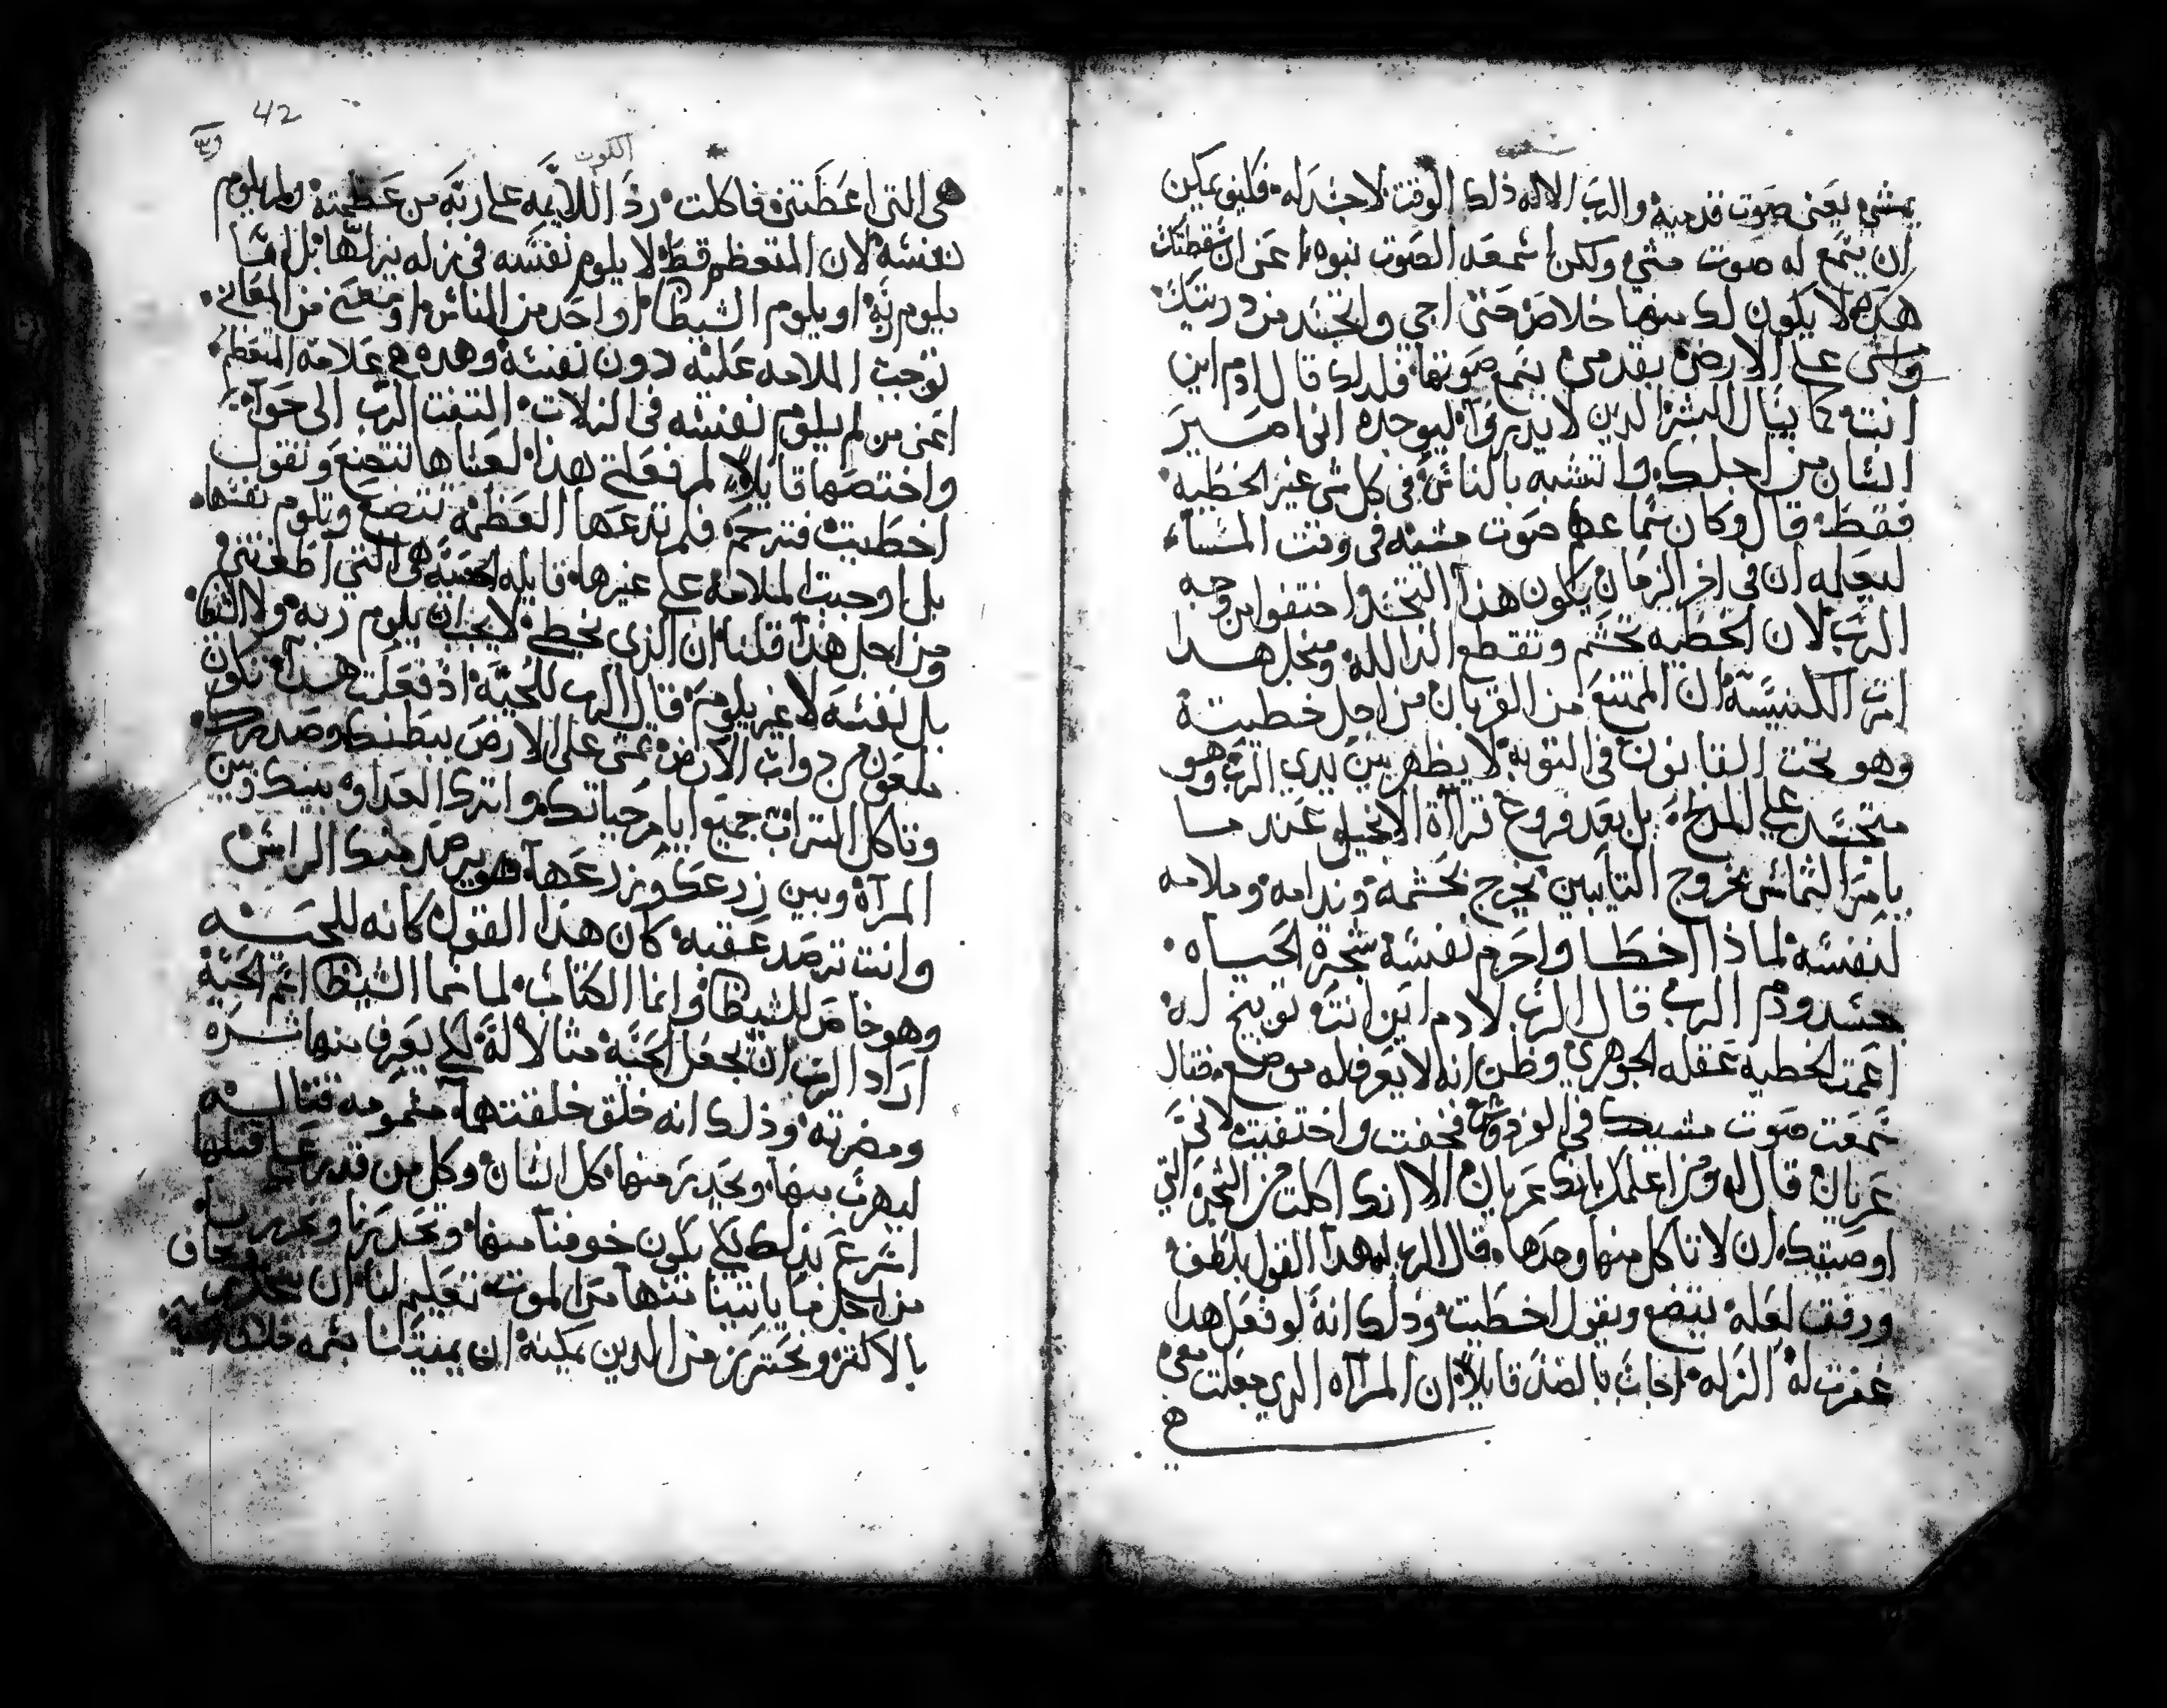 يمشي يعنى صوت قدميه والرب الاله ذلك الوقت لا جسد له فكيف يمكن
ان يسمع له صوت مشي ولكن اسمعه الصوت نبوه اعنى ان سقطتك
هذه لا يكون لك منها خلاص حتى اجي واتجسد من دريتك
وامشى على الارض بقدمي يسمع صوتها فلدلك قال ادم اين
انت كما يسال البشر الدين لا يدروا ليوجده انى اصير
انسان من اجلك واتشبه بالناس فى كل شى غير الخطيه
فقط قال وكان سماعهم صوت مشيه فى وقت المساء
ليعلمه ان فى اخر الزمان يكون هذا التجسد واختفوا من وجه
الرب لان الخطيه تحشم وتقطع الدالله ومنجل هدا
امرت الكنيسه ان الممتنع من القربان من اجل خطيته
وهو تحت القانون فى التوبه لا يظهر بين يدي الرب وهو
متجسد على المدبح بل بعد فروغ قراأة الانجيل عند ما
يامر الشماس بخروج التايبين يخرج بحشمه وندامه وملامه
لنفسه لماذا اخطا واحرم نفسه شجرة الحياه
جسد ودم الرب قال الرب لادم اين انت توبيخ له
اعمت الخطيه عقله الجوهري وظن انه لا يعرف له موضع فقال
سمعت صوت مشيك فى الفردوس فخفت واختفيت لانى
عريان قال له ومن اعلمك بانك عريان الا انك اكلت من الشجره التي
اوصيتك ان لا تاكل منها وحدها قال الرب له هدا القول بلطف
ورفق لعله يتضع ويقول اخطيت ودلك انه لو فعل هدا
غفرت له الزله اجاب بالضد قايلا ان المراه الدي جعلت معي
هي
42
اللوت
هى التى اعطتنى فاكلت رد اللايمه على ربه من عظمته ولم يلوم
نفسه لان المتعظم قط لا يلوم نفسه فى زله يزلها بل اما
يلوم ربه او يلوم الشيطان او احد من الناس او معنى من المعانى
توجب الملامه عليه دون نفسه وهده هى علامه المتعظم
اعنى من لم يلوم نفسه فى الزلات التفت الرب الى حوآ
واختصها قايلا لم فعلتي هذا لعساها تتضع وتقول
اخطيت فترحم فلم تدعها العظمه تتضع وتلوم نفسها
بل اوجبت الملامه على غيرها قايله الحيه هى التي اطغتني
ومن اجل هذا قلنا ان الذي يخطي لا يجب ان يلوم ربه ولا
بل نفسه لا غير يلوم قال الرب للحيه اذ فعلت هذا تكون
ملعون من دواب الارض تمشى على الارض ببطنك وصدرك
وتاكل التراب جميع ايام حياتك واترك العداوه بينك وبين
المرآه وبين زرعك وزرعها هو يرصد منك الراس
وانت ترصد عقبه كان هذا القول كانه للحيه
وهو خاص للشيطان وانما الكتاب لما سما الشيطان اسم الحيه
اراد الرب ان يجعل الحيه مثالا له لكي يعرف منها شره
ومضرته وذلك انه خلق خلقتها مسمومه قتاله
ليهرب منها ويحدر منها كل انسان وكل من قدر على قتلها
اشرع بذلك لكي يكون خوفنا منها وتحدرنا
من اجل ما ياتينا منها مرا لموت تعليم لنا ان
بالاكتر ونحترز من الدين يمكنه ان يميتنا بسمه